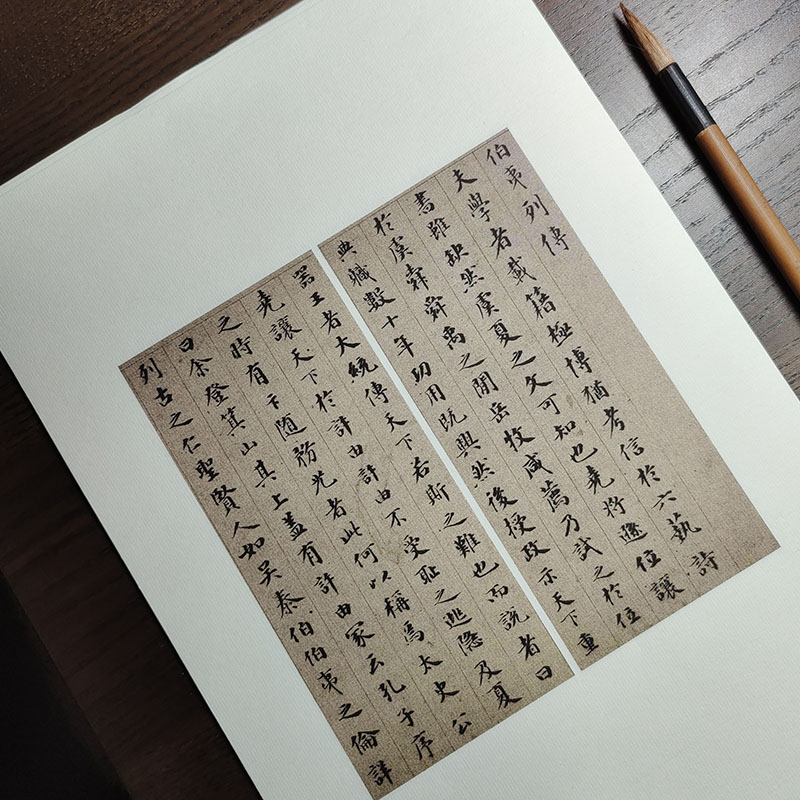 伯夷列傳
夫學者載籍極博猶考信於六藝詩
書雖缺然虞夏之文可知也堯將遜位讓
於虞舜舜禹之閒岳牧咸薦乃試之於位
典職數十年功用既興然後授政示天下重
器王者大統傳天下若斯之難也而說者曰
堯讓天下於許由許由不受恥之逃隱及夏
之時有卞隨務光者此何以稱焉太史公
曰余登箕山其上蓋有許由冢云孔子序
列古之仁聖賢人如吳泰伯伯夷之倫詳